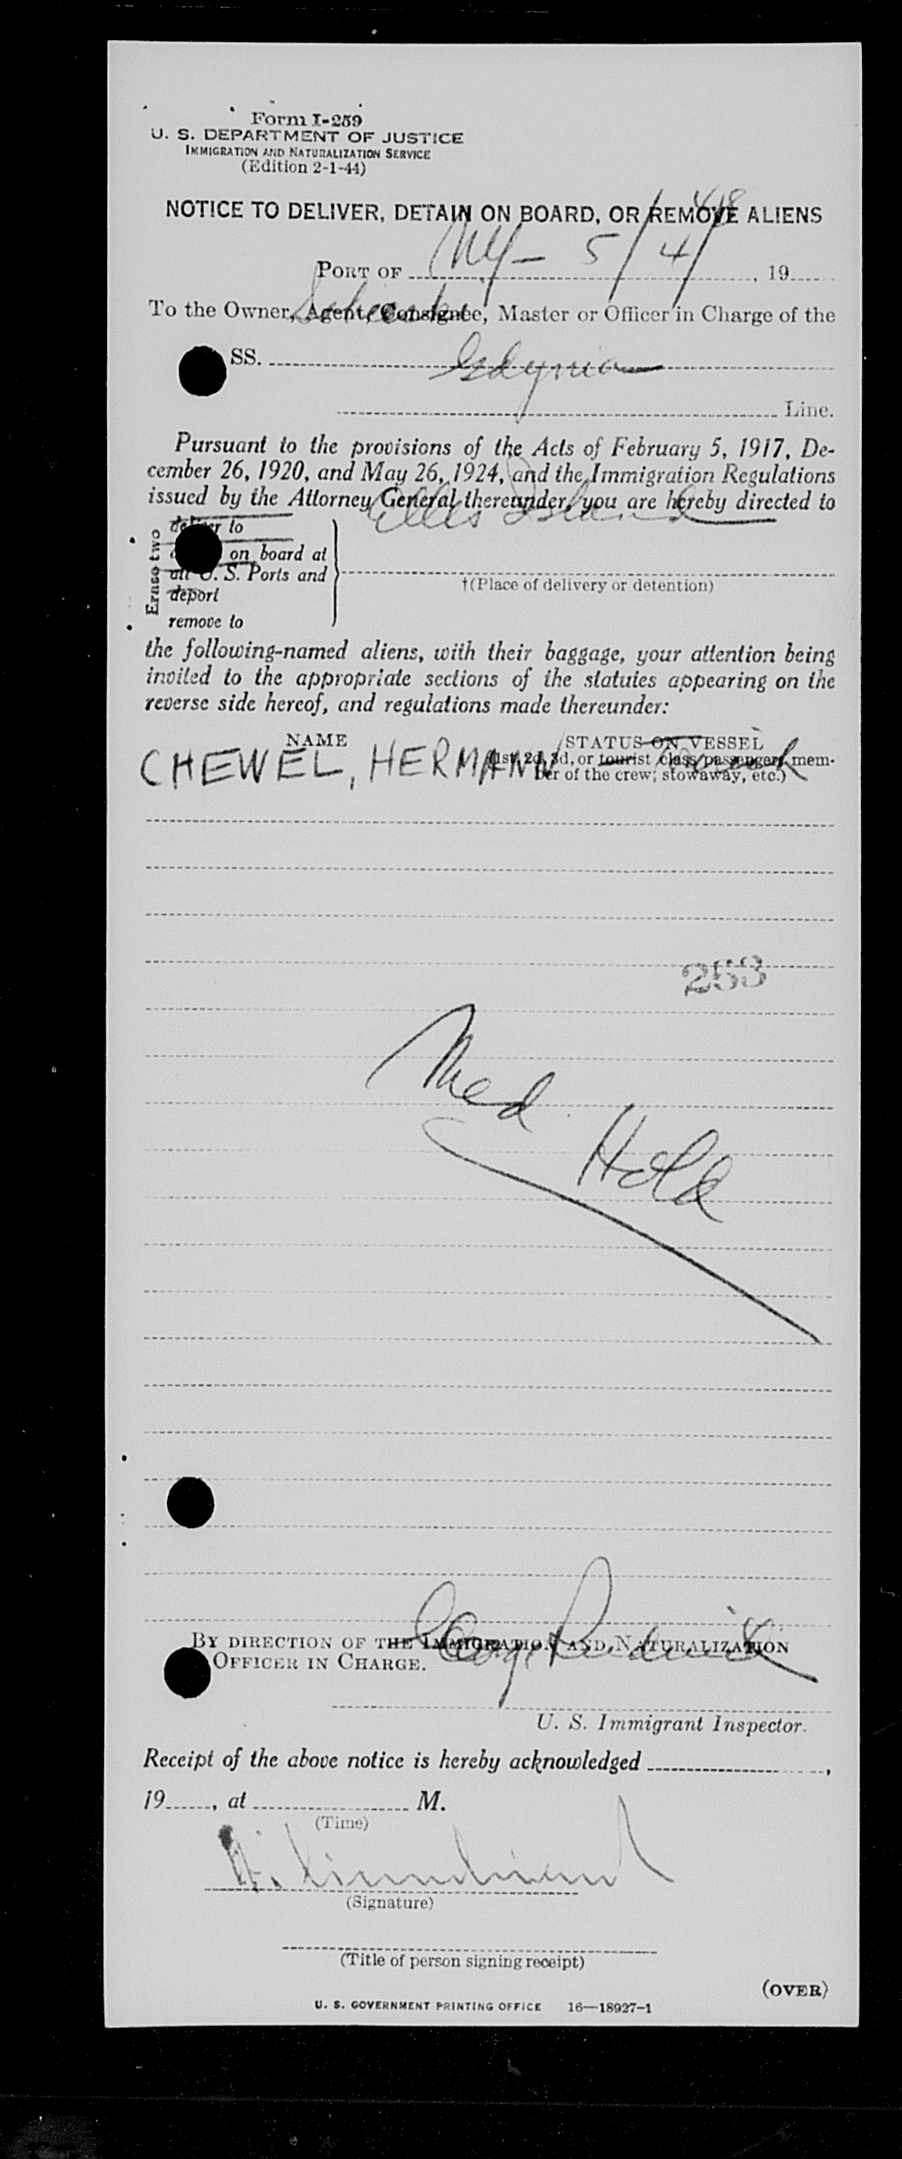 Form I-259
U. S. DEPARTMENT OF JUSTICE
IMMIGRATION AND NATURALIZATION SERVICE
(Edition 2-1-44)
NOTICE TO DELIVER, DETAIN ON BOARD, OR REMOVE ALIENS
PORT OF NY- 5/4/48, 19
To the Owner, Agent, Consignee, Master or Officer in Charge of the
SS. Gdynia
Line.
Pursuant to the provisions of the Acts of February 5, 1917, De-
cember 26, 1920, and May 26, 1924, and the Immigration Regulations
issued by the Attorney General thereunder, you are hereby directed to
Ellis Island
Erase two
deliver to
on board at
all U. S. Ports and
deport
remove to
†(Place of delivery or detention)
the following-named aliens, with their baggage, your attention being
invited to the appropriate sections of the statutes appearing on the
reverse side hereof, and regulations made thereunder:
NAME STATUS ON VESSEL
(1st, 2d, 3d, or tourist class passenger, mem-
ber of the crew; stowaway, etc.)
CHEWEL, HERMANN
253
Med. Hold
George
BY DIRECTION OF THE IMMIGRATION AND NATURALIZATION
OFFICER IN CHARGE.
U. S. Immigrant Inspector.
Receipt of the above notice is hereby acknowledged ,
19 , at M.
(Time)
(Signature)
(Title of person signing receipt)
(OVER)
U. S. GOVERNMENT PRINTING OFFICE 16—18927-1